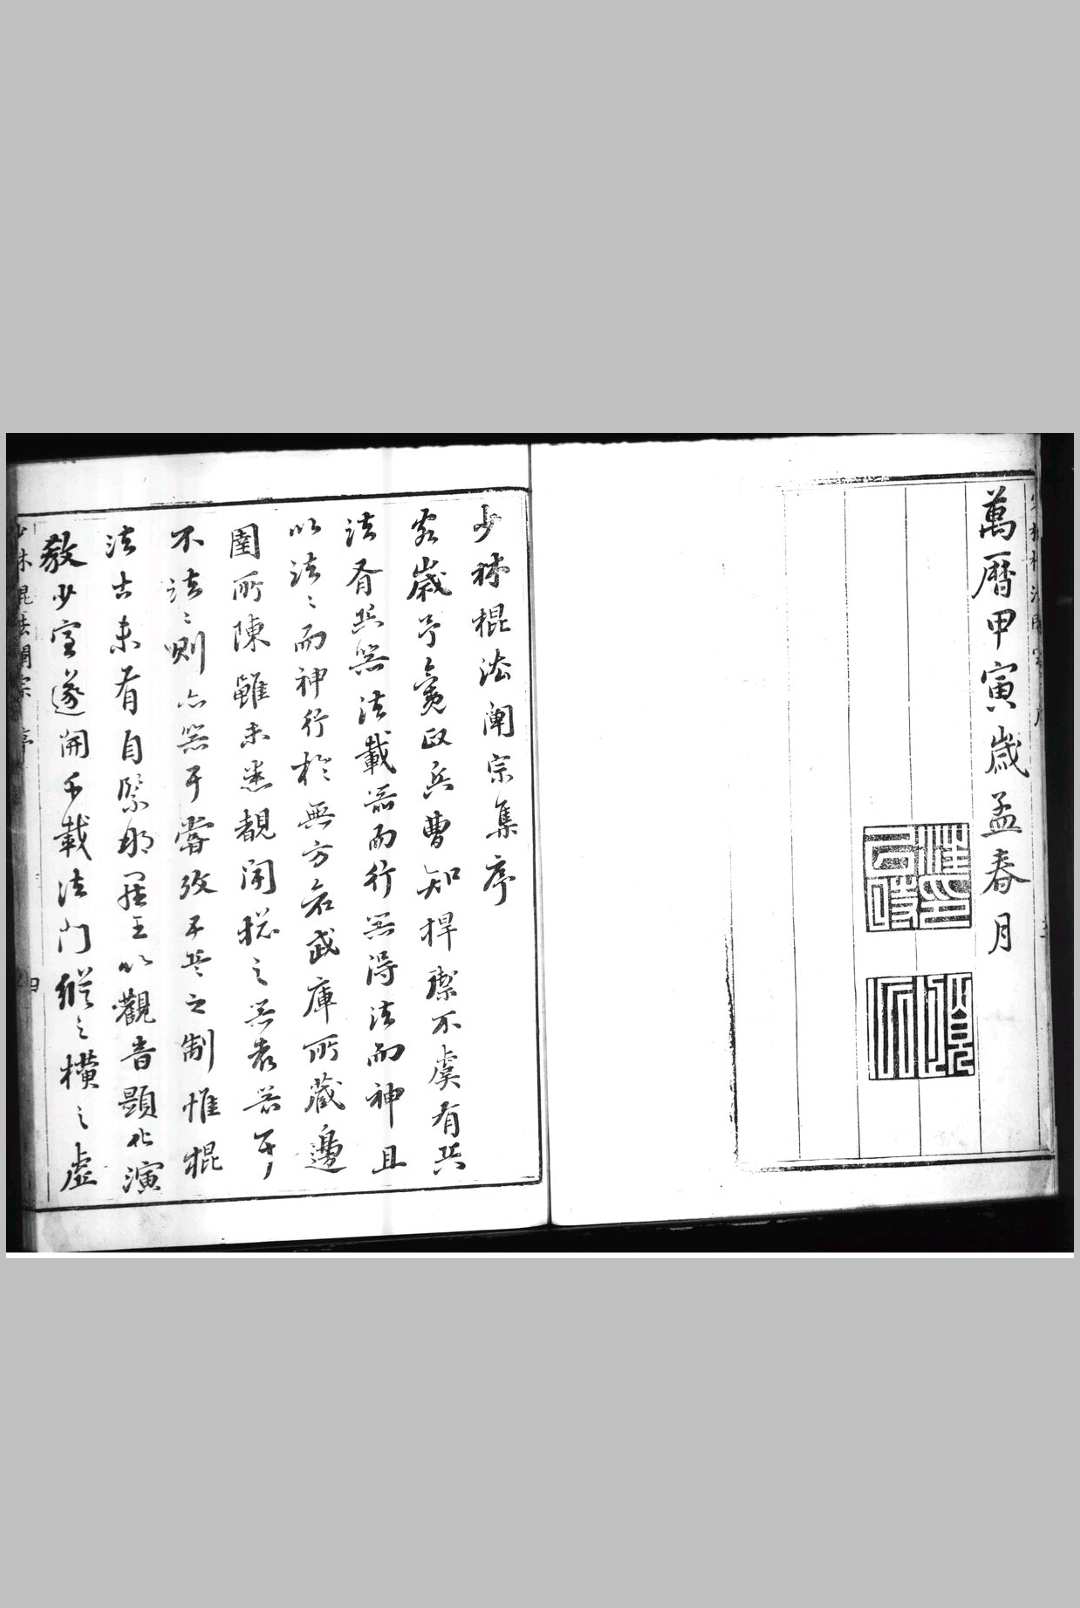 萬曆甲寅歲孟春月
少林棍法闡宗集序
歲予
政兵曹知捍禦不虞有兵
法有兵器法載器而行器得法而神且
以法法而神行於無方若武庫所藏邊
圉所陳雖未悉覩聞總之器表器耳
不法法則亦器耳嘗攷五兵之制惟棍
法古未有自緊那羅王以觀音顯化演
教少室遂開千載法門縱之橫之虛
少林棍法闡宗 序 四